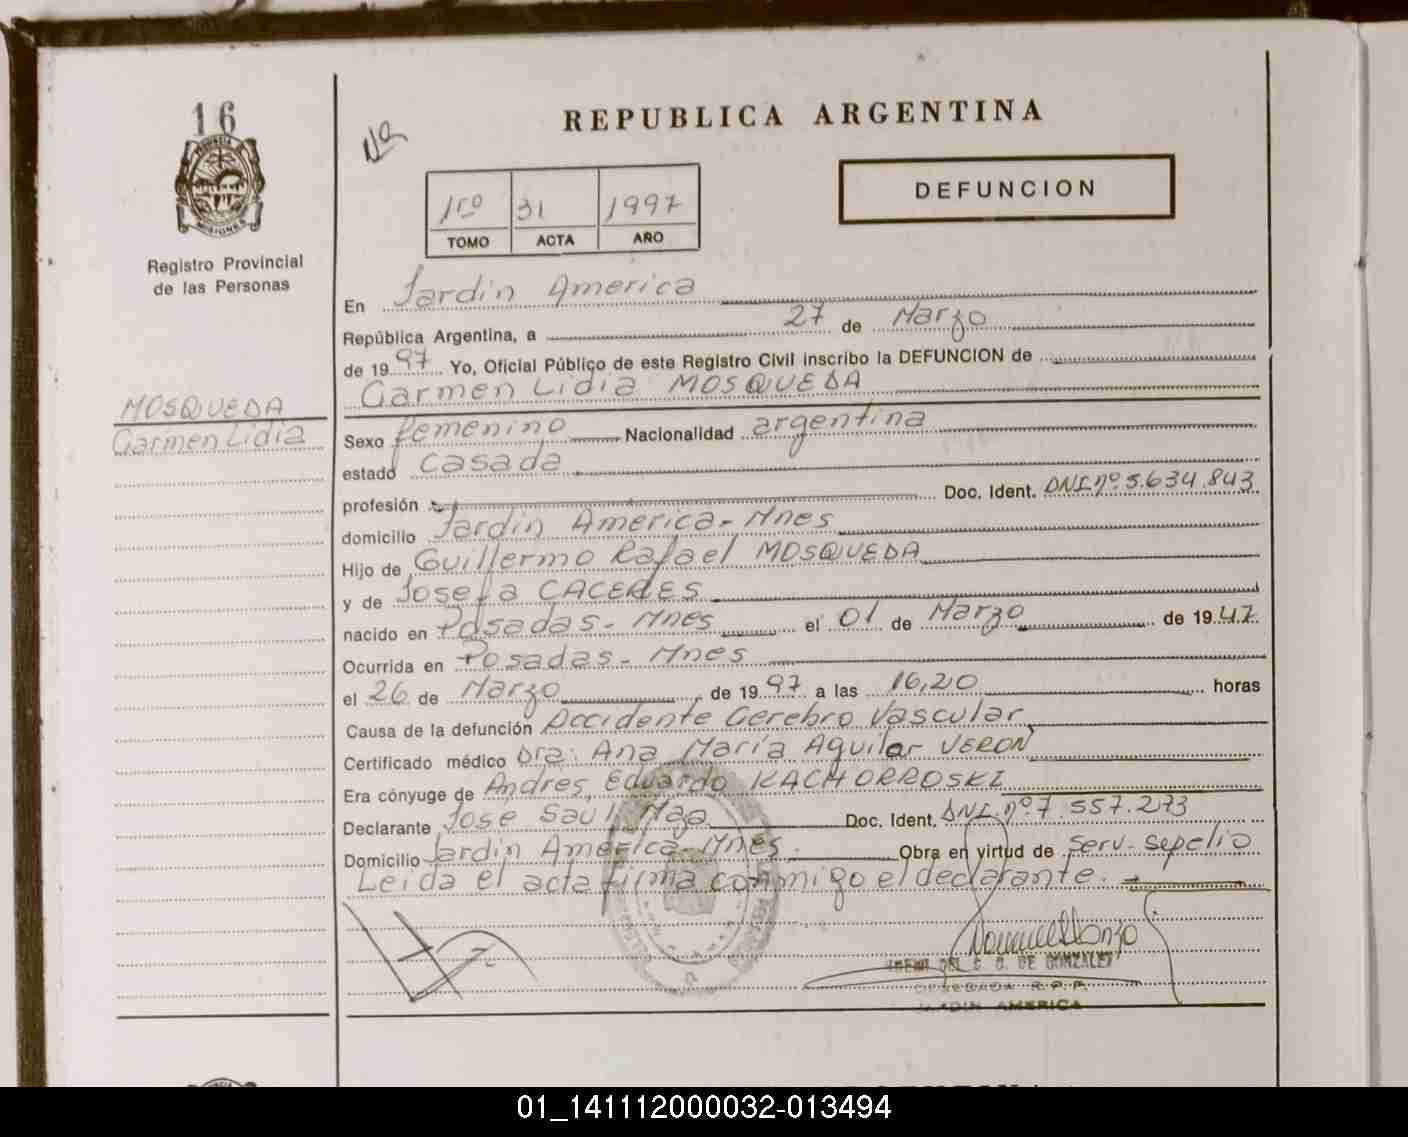 16
PROVINCIA DE
MISIONES
Registro Provincial
de las Personas
MOSQUEDA
Carmen Lidia
Nº
REPUBLICA ARGENTINA
DEFUNCION
1ro 31 1997
TOMO ACTA AÑO
En Jardin America
República Argentina, a 27 de Marzo
de 19 97 Yo, Oficial Público de este Registro Civil inscribo la DEFUNCION de
Carmen Lidia MOSQUEDA
Sexo femenino Nacionalidad argentina
estado casada
profesión Doc. Ident. DNI nº 5.634.843
domicilio Jardin America - Mnes
Hijo de Guillermo Rafael MOSQUEDA
y de Josefa CACERES
nacido en Posadas - Mnes el 01 de Marzo de 1947
Ocurrida en Posadas - Mnes
el 26 de Marzo de 19 97 a las 16,20 horas
Causa de la defunción Accidente Cerebro Vascular
Certificado médico Dra: Ana María Aguilar VERON
Era cónyuge de Andres Eduardo KACHORROSKI
Declarante José Saúl Maza Doc. Ident. DNI. nº 7.557.273
Domicilio Jardin America - Mnes Obra en virtud de serv. sepelio
Leida el acta firma conmigo el declarante.
DE GONZALEZ
R.P.P.
JARDIN AMERICA
01_141112000032-013494